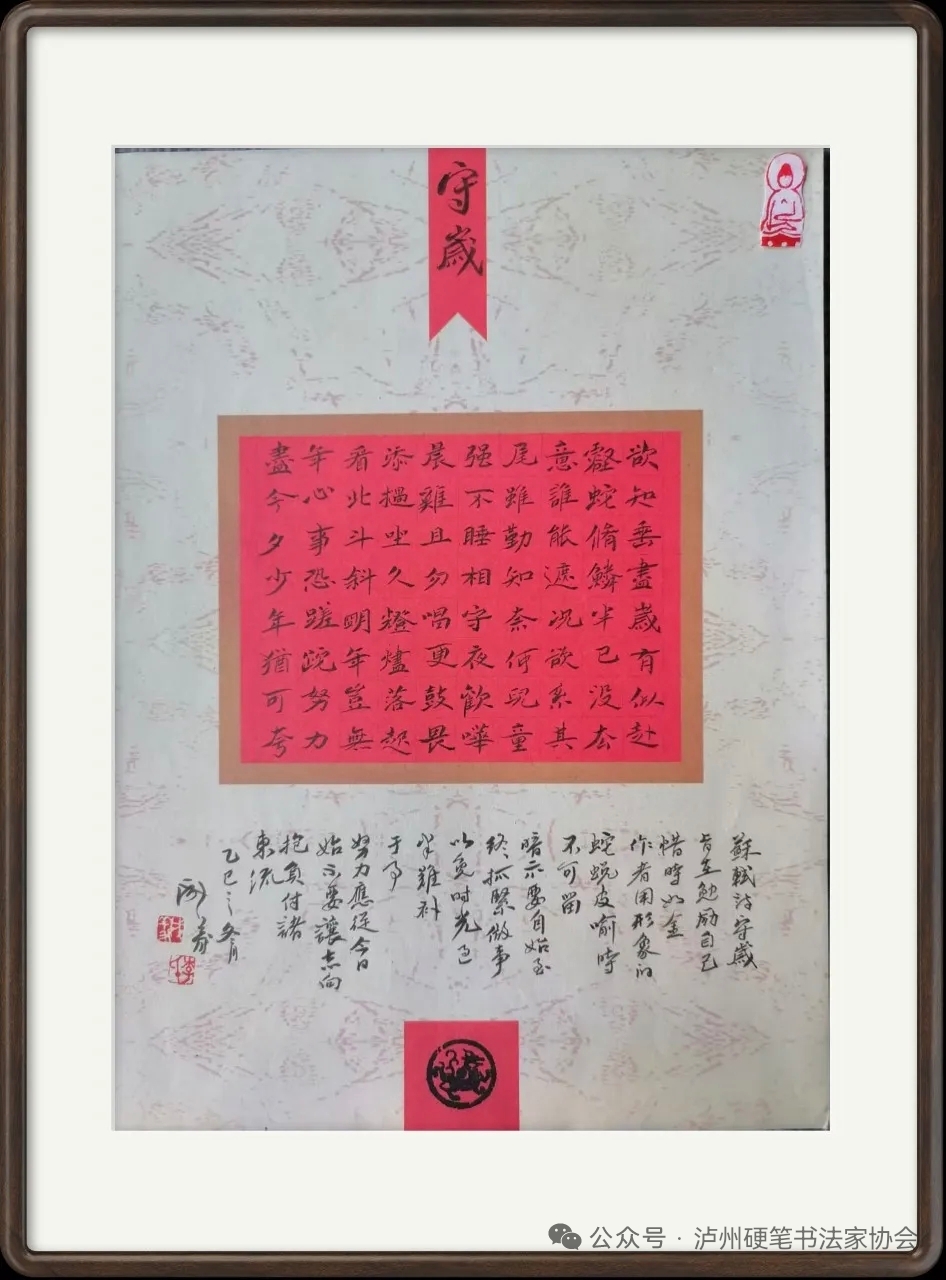 守歲
欲知垂盡歲有似赴
壑蛇脩鱗半已没去
意誰能遮況欲系其
尾雖勤知奈何兒童
强不睡相守夜歡嘩
晨雞且勿唱更鼓畏
添撾坐久燈燼落起
看北斗斜明年豈無
年心事恐蹉跎努力
盡今夕少年猶可夸
蘇軾詩守歲
旨在勉励自己
惜時如金
作者用形象的
蛇蜕皮喻時
不可留
暗示要自始至
終抓緊做事
以免时光过
半難补
于事
努力應從今日
始不要讓志向
抱負付諸
東流
乙巳之冬月
公众号·泸州硬笔书法家协会